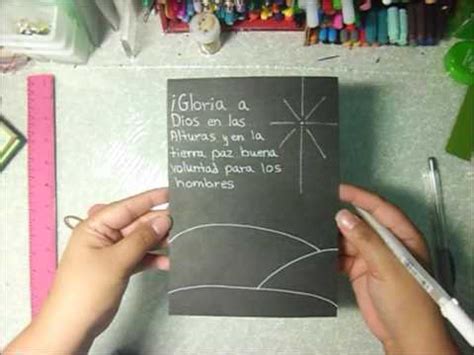 ¡Gloria a
Dios en las
Alturas y en la
tierra paz buena
voluntad para los
hombres